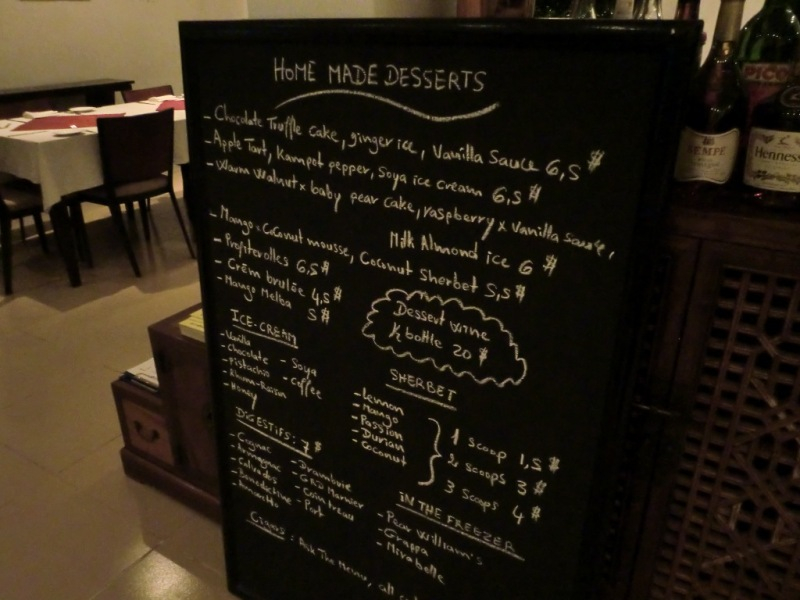 HOME MADE DESSERTS
- Chocolate Truffle cake, ginger ice, Vanilla Sauce 6,5 $
- Apple Tart, Kampot pepper, Soya ice cream 6,5 $
- Warm Walnut x baby pear cake, raspberry x Vanilla sauce,
Milk Almond ice 6 $
- Mango x Coconut mousse, Coconut Sherbet 5,5 $
- Profiterolles 6,5 $
- Crèm brulée 4,5 $
- Mango Melba 5 $
Dessert wine
1/2 bottle 20 $
ICE-CREAM
- Vanilla
- Chocolate - Soya
- Pistachio - Coffee
- Rhum-Raisin
- Honey
SHERBET
- Lemon
- Mango
- Passion
- Durian
- Coconut
1 scoop 1,5 $
2 scoops 3 $
3 scoops 4 $
DIGESTIFS: 7 $
- Cognac - Drambuie
- Armagnac - Grd Marnier
- Calvados - Cointreau
- Benedictine - Port
- Amaretto
IN THE FREEZER
- Pear William's
- Grappa
- Mirabelle
Cigars: Ask The Menu, all
KEMPE
Hennessy
PICO